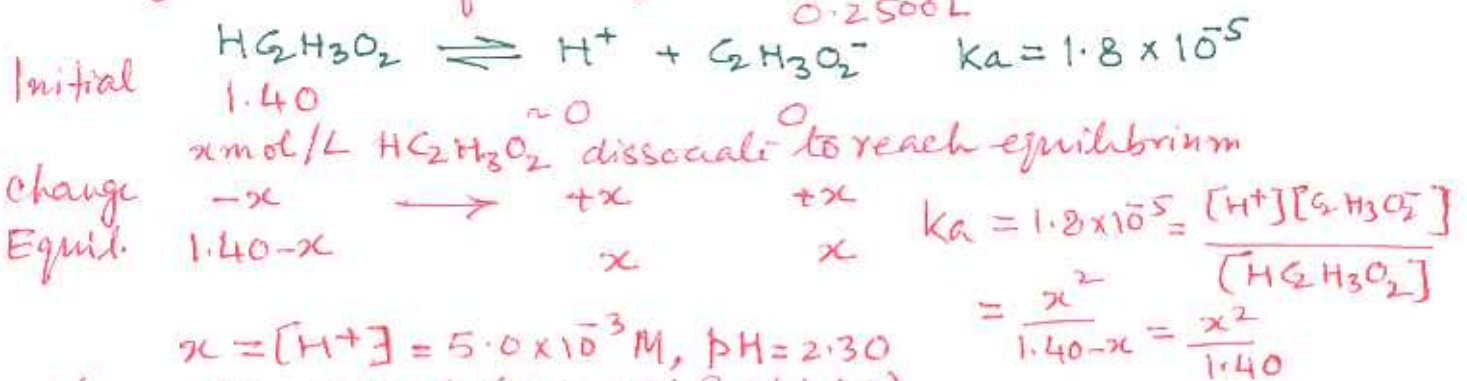 0.2500L
HC₂H₃O₂ ⇌ H⁺ + C₂H₃O₂⁻ Ka = 1.8 x 10⁻⁵
Initial 1.40 ~0 0
x mol/L HC₂H₃O₂ dissociate to reach equilibrium
Change -x → +x +x
Equil. 1.40-x x x
Ka = 1.8x10⁻⁵ = [H⁺][C₂H₃O₂⁻] / [HC₂H₃O₂]
= x² / 1.40-x = x² / 1.40
x = [H⁺] = 5.0 x 10⁻³ M, pH = 2.30